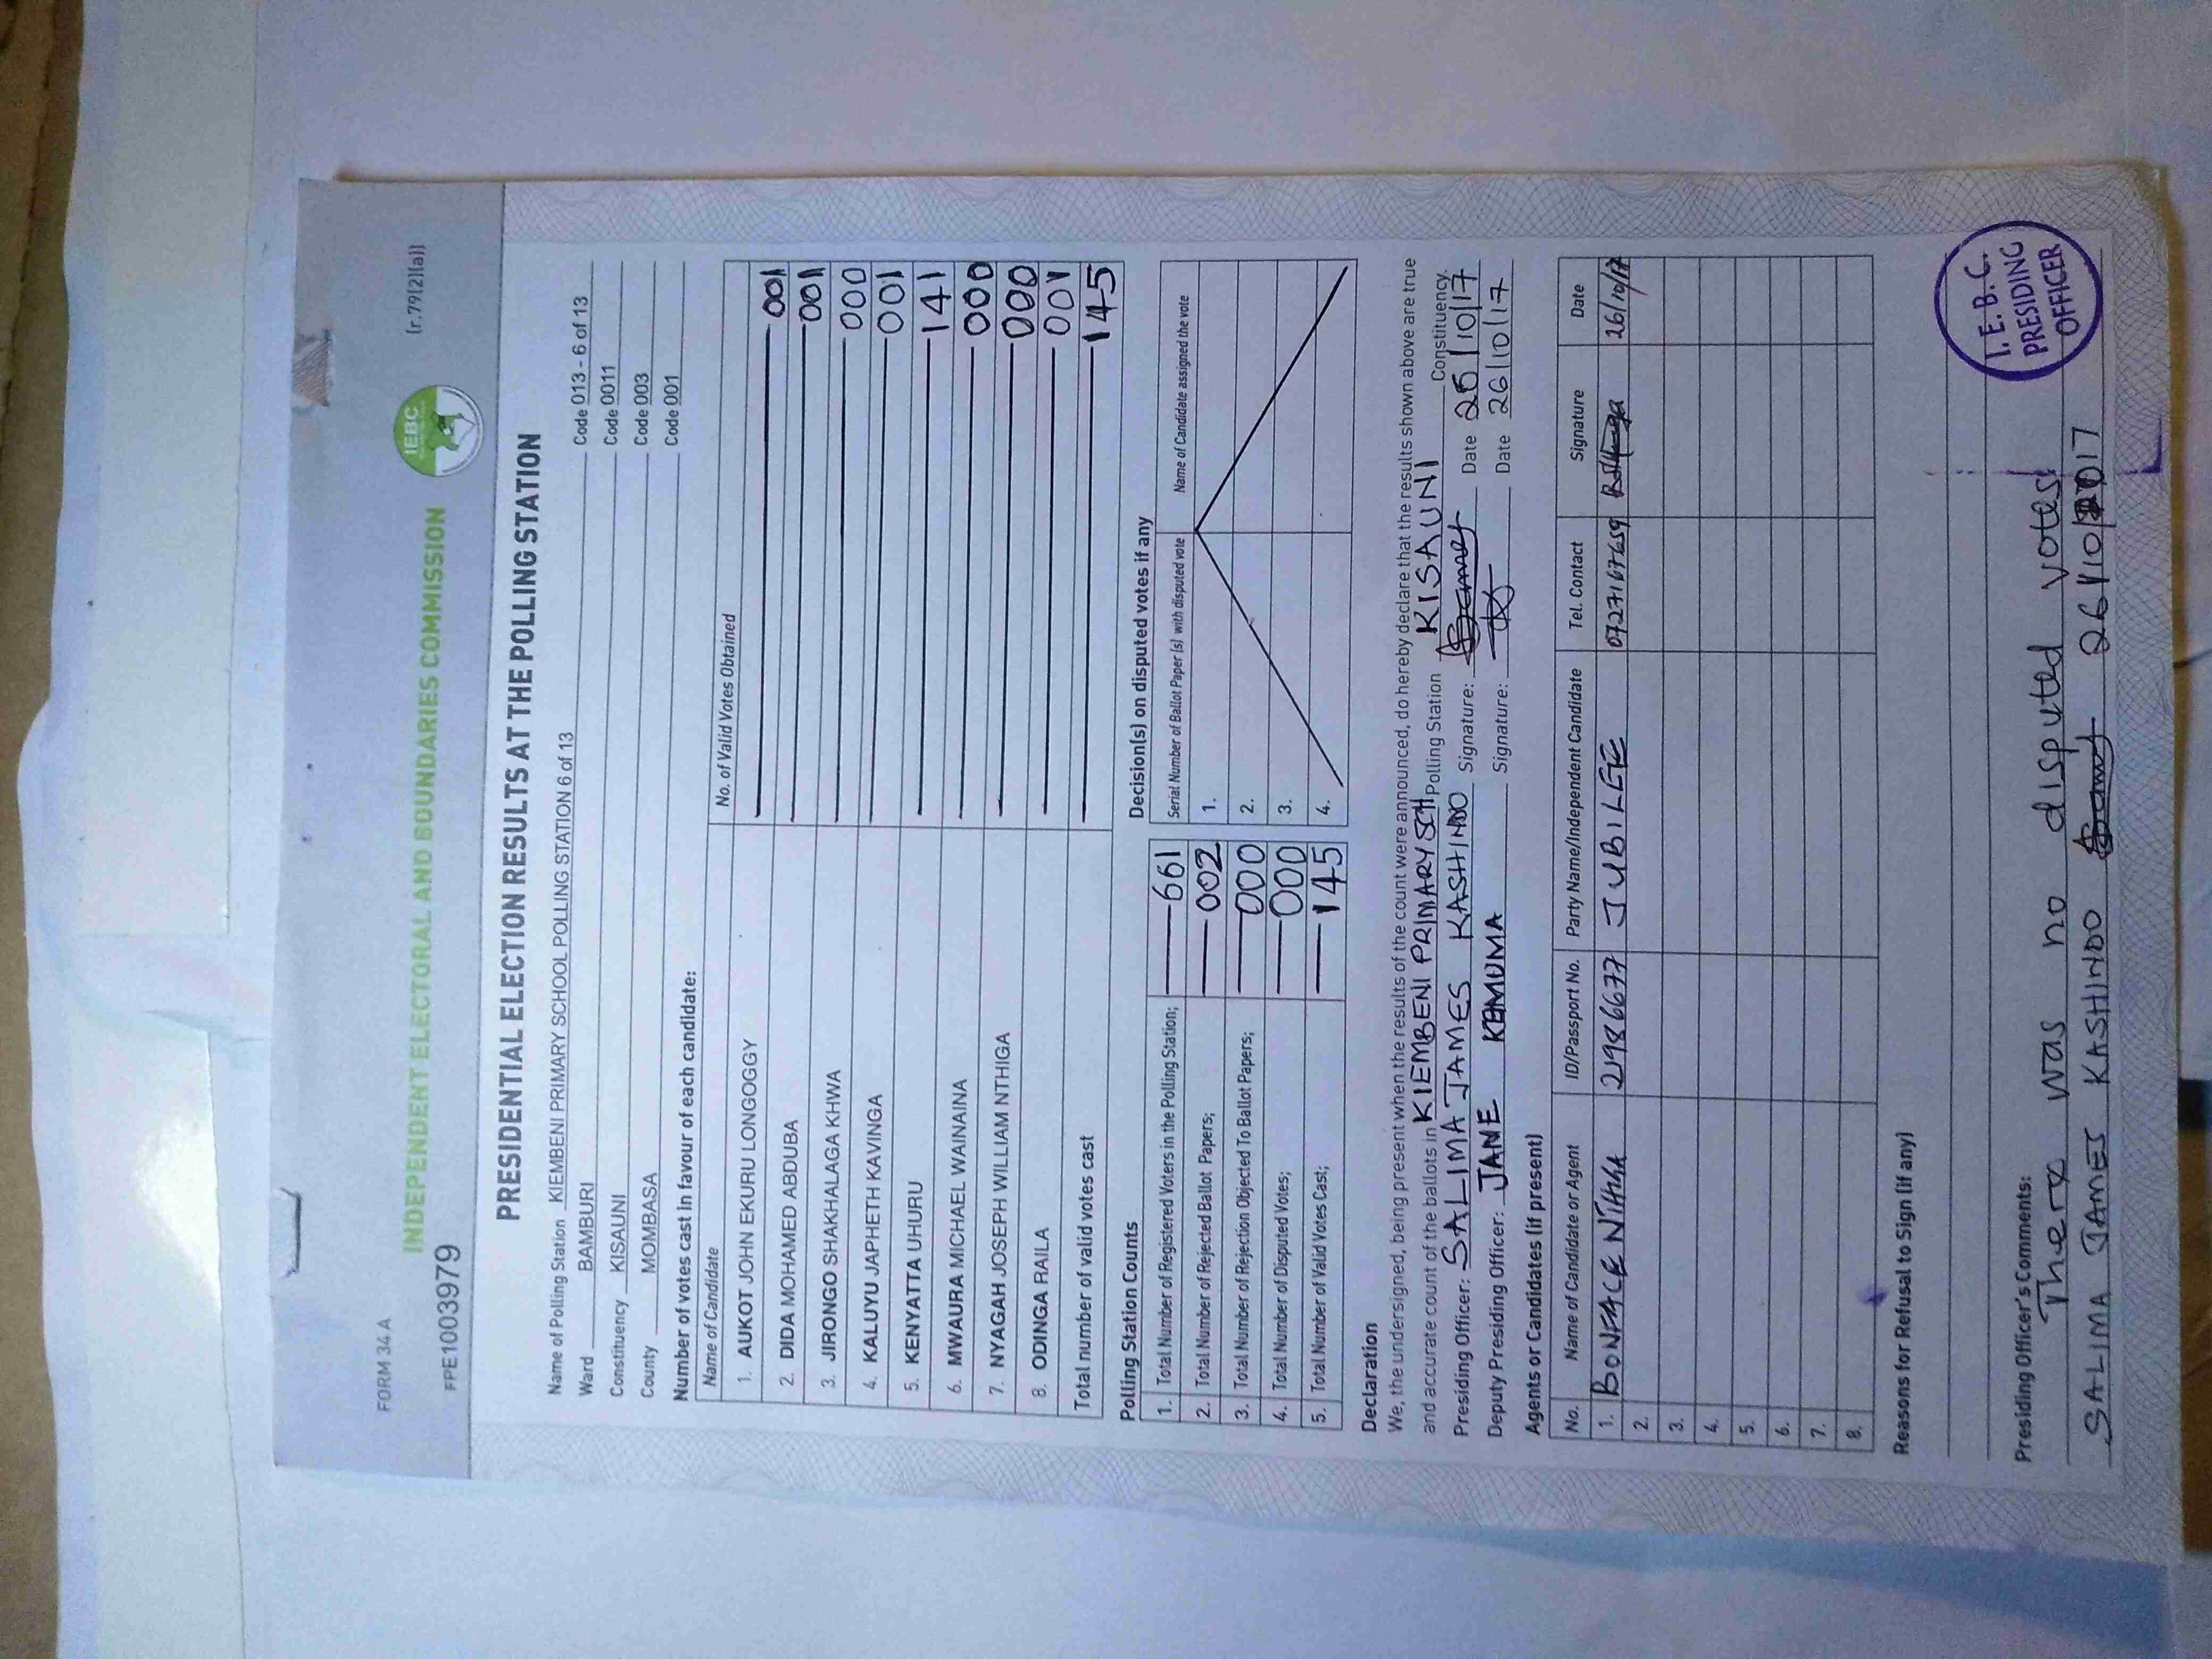 FORM 34 A
(r.79(2)(a))
INDEPENDENT ELECTORAL AND BOUNDARIES COMMISSION
IEBC
FPE1003979
PRESIDENTIAL ELECTION RESULTS AT THE POLLING STATION
Name of Polling Station KIEMBENI PRIMARY SCHOOL POLLING STATION 6 of 13 Code 013 - 6 of 13
Ward BAMBURI Code 0011
Constituency KISAUNI Code 003
County MOMBASA Code 001
Number of votes cast in favour of each candidate:
Name of Candidate No. of Valid Votes Obtained
1. AUKOT JOHN EKURU LONGOGGY 001
2. DIDA MOHAMED ABDUBA 001
3. JIRONGO SHAKHALAGA KHWA 000
4. KALUYU JAPHETH KAVINGA 001
5. KENYATTA UHURU 141
6. MWAURA MICHAEL WAINAINA 000
7. NYAGAH JOSEPH WILLIAM NTHIGA 000
8. ODINGA RAILA 001
Total number of valid votes cast 145
Polling Station Counts
1. Total Number of Registered Voters in the Polling Station; 661
2. Total Number of Rejected Ballot Papers; 002
3. Total Number of Rejection Objected To Ballot Papers; 000
4. Total Number of Disputed Votes; 000
5. Total Number of Valid Votes Cast; 145
Decision(s) on disputed votes if any
Serial Number of Ballot Paper (s) with disputed vote Name of Candidate assigned the vote
1.
2.
3.
4.
Declaration
We, the undersigned, being present when the results of the count were announced, do hereby declare that the results shown above are true
and accurate count of the ballots in KIEMBENI PRIMARY SCH Polling Station KISAUNI Constituency.
Presiding Officer: SALIMA JAMES KASHINDO Signature: Date 26/10/17
Deputy Presiding Officer: JANE KEMUMA Signature: Date 26/10/17
Agents or Candidates (if present)
No. Name of Candidate or Agent ID/Passport No. Party Name/Independent Candidate Tel. Contact Signature Date
1. BONFACE NTHIGA 21986677 JUBILEE 0727167659 26/10/17
2.
3.
4.
5.
6.
7.
8.
Reasons for Refusal to Sign (if any)
Presiding Officer's Comments:
There was no disputed votes
SALIMA JAMES KASHINDO 26/10/2017
I.E.B.C.
PRESIDING
OFFICER